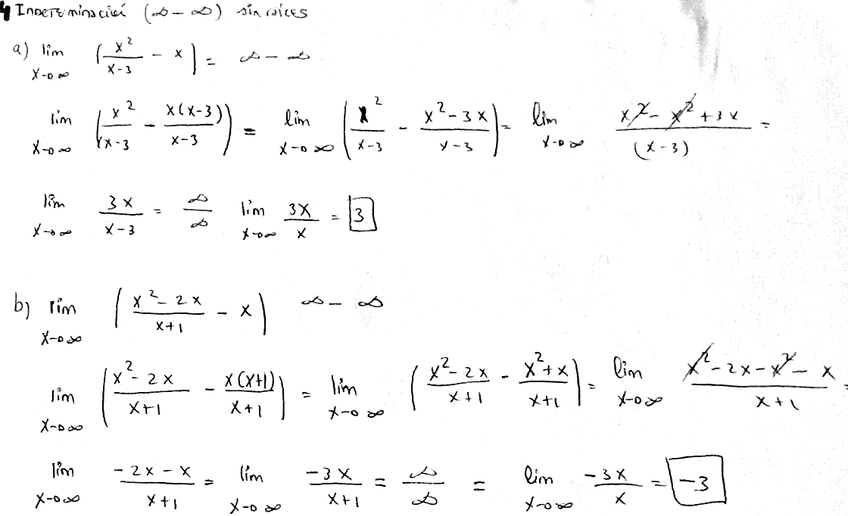 4 Indeterminación (∞ - ∞) sin raíces
a) lim x→∞ (x²/(x-3) - x) = ∞ - ∞
lim x→∞ (x²/(x-3) - x(x-3)/(x-3)) = lim x→∞ (x²/(x-3) - (x²-3x)/(x-3)) = lim x→∞ (x² - x² + 3x)/(x-3) =
lim x→∞ 3x/(x-3) = ∞/∞ lim x→∞ 3x/x = 3
b) lim x→∞ ((x²-2x)/(x+1) - x) ∞ - ∞
lim x→∞ ((x²-2x)/(x+1) - x(x+1)/(x+1)) = lim x→∞ ((x²-2x)/(x+1) - (x²+x)/(x+1)) = lim x→∞ (x²-2x-x²-x)/(x+1) =
lim x→∞ (-2x-x)/(x+1) = lim x→∞ -3x/(x+1) = ∞/∞ = lim x→∞ -3x/x = -3